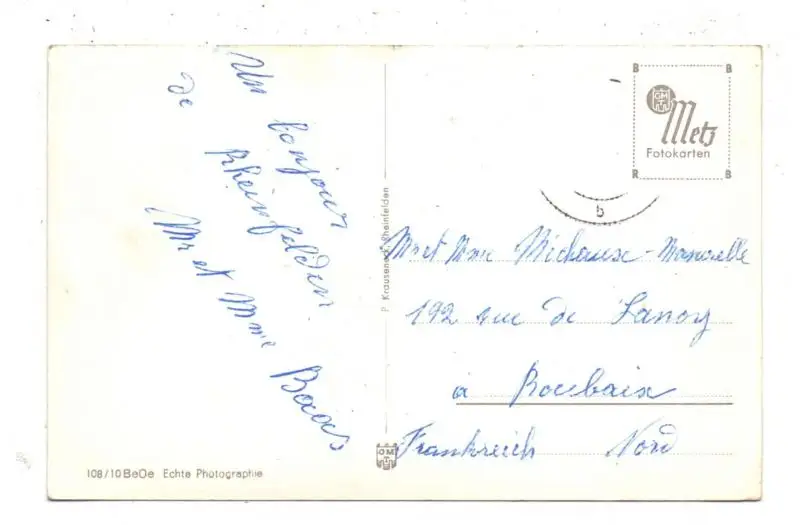 Un bonjour
de Rheinfelden.
Mr et Mme Baas
108/10 BeOe Echte Photographie
P. Krauseneck, Rheinfelden
GMT
B B
Metz
Fotokarten
R B
b
Mr et Mme Michaux-
192 rue de Lannoy
à Roubaix
Frankreich Nord